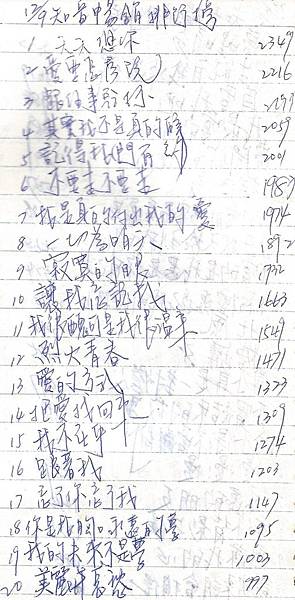 12/9知音暢銷排行榜
1 天天想你 2349
2 愛要怎麼說 2216
3 醉
4 其實我不是真的 2059
5 記得我們有約 2001
6 不要走不要走 1987
7 我是真的付出我的愛 1974
8 一切為明天 1892
9 寂寞的 1732
10 讓我忘記 1663
11 我很醜可是我很溫柔 1549
12 烈火青春 1471
13 愛的方式 1323
14 把愛找回來 1309
15 我不在乎 1274
16 跟著我 1203
17 忘了你忘了我 1147
18 你是我的永遠的 1095
19 我的未來不是夢 1003
20 美麗與哀愁 997